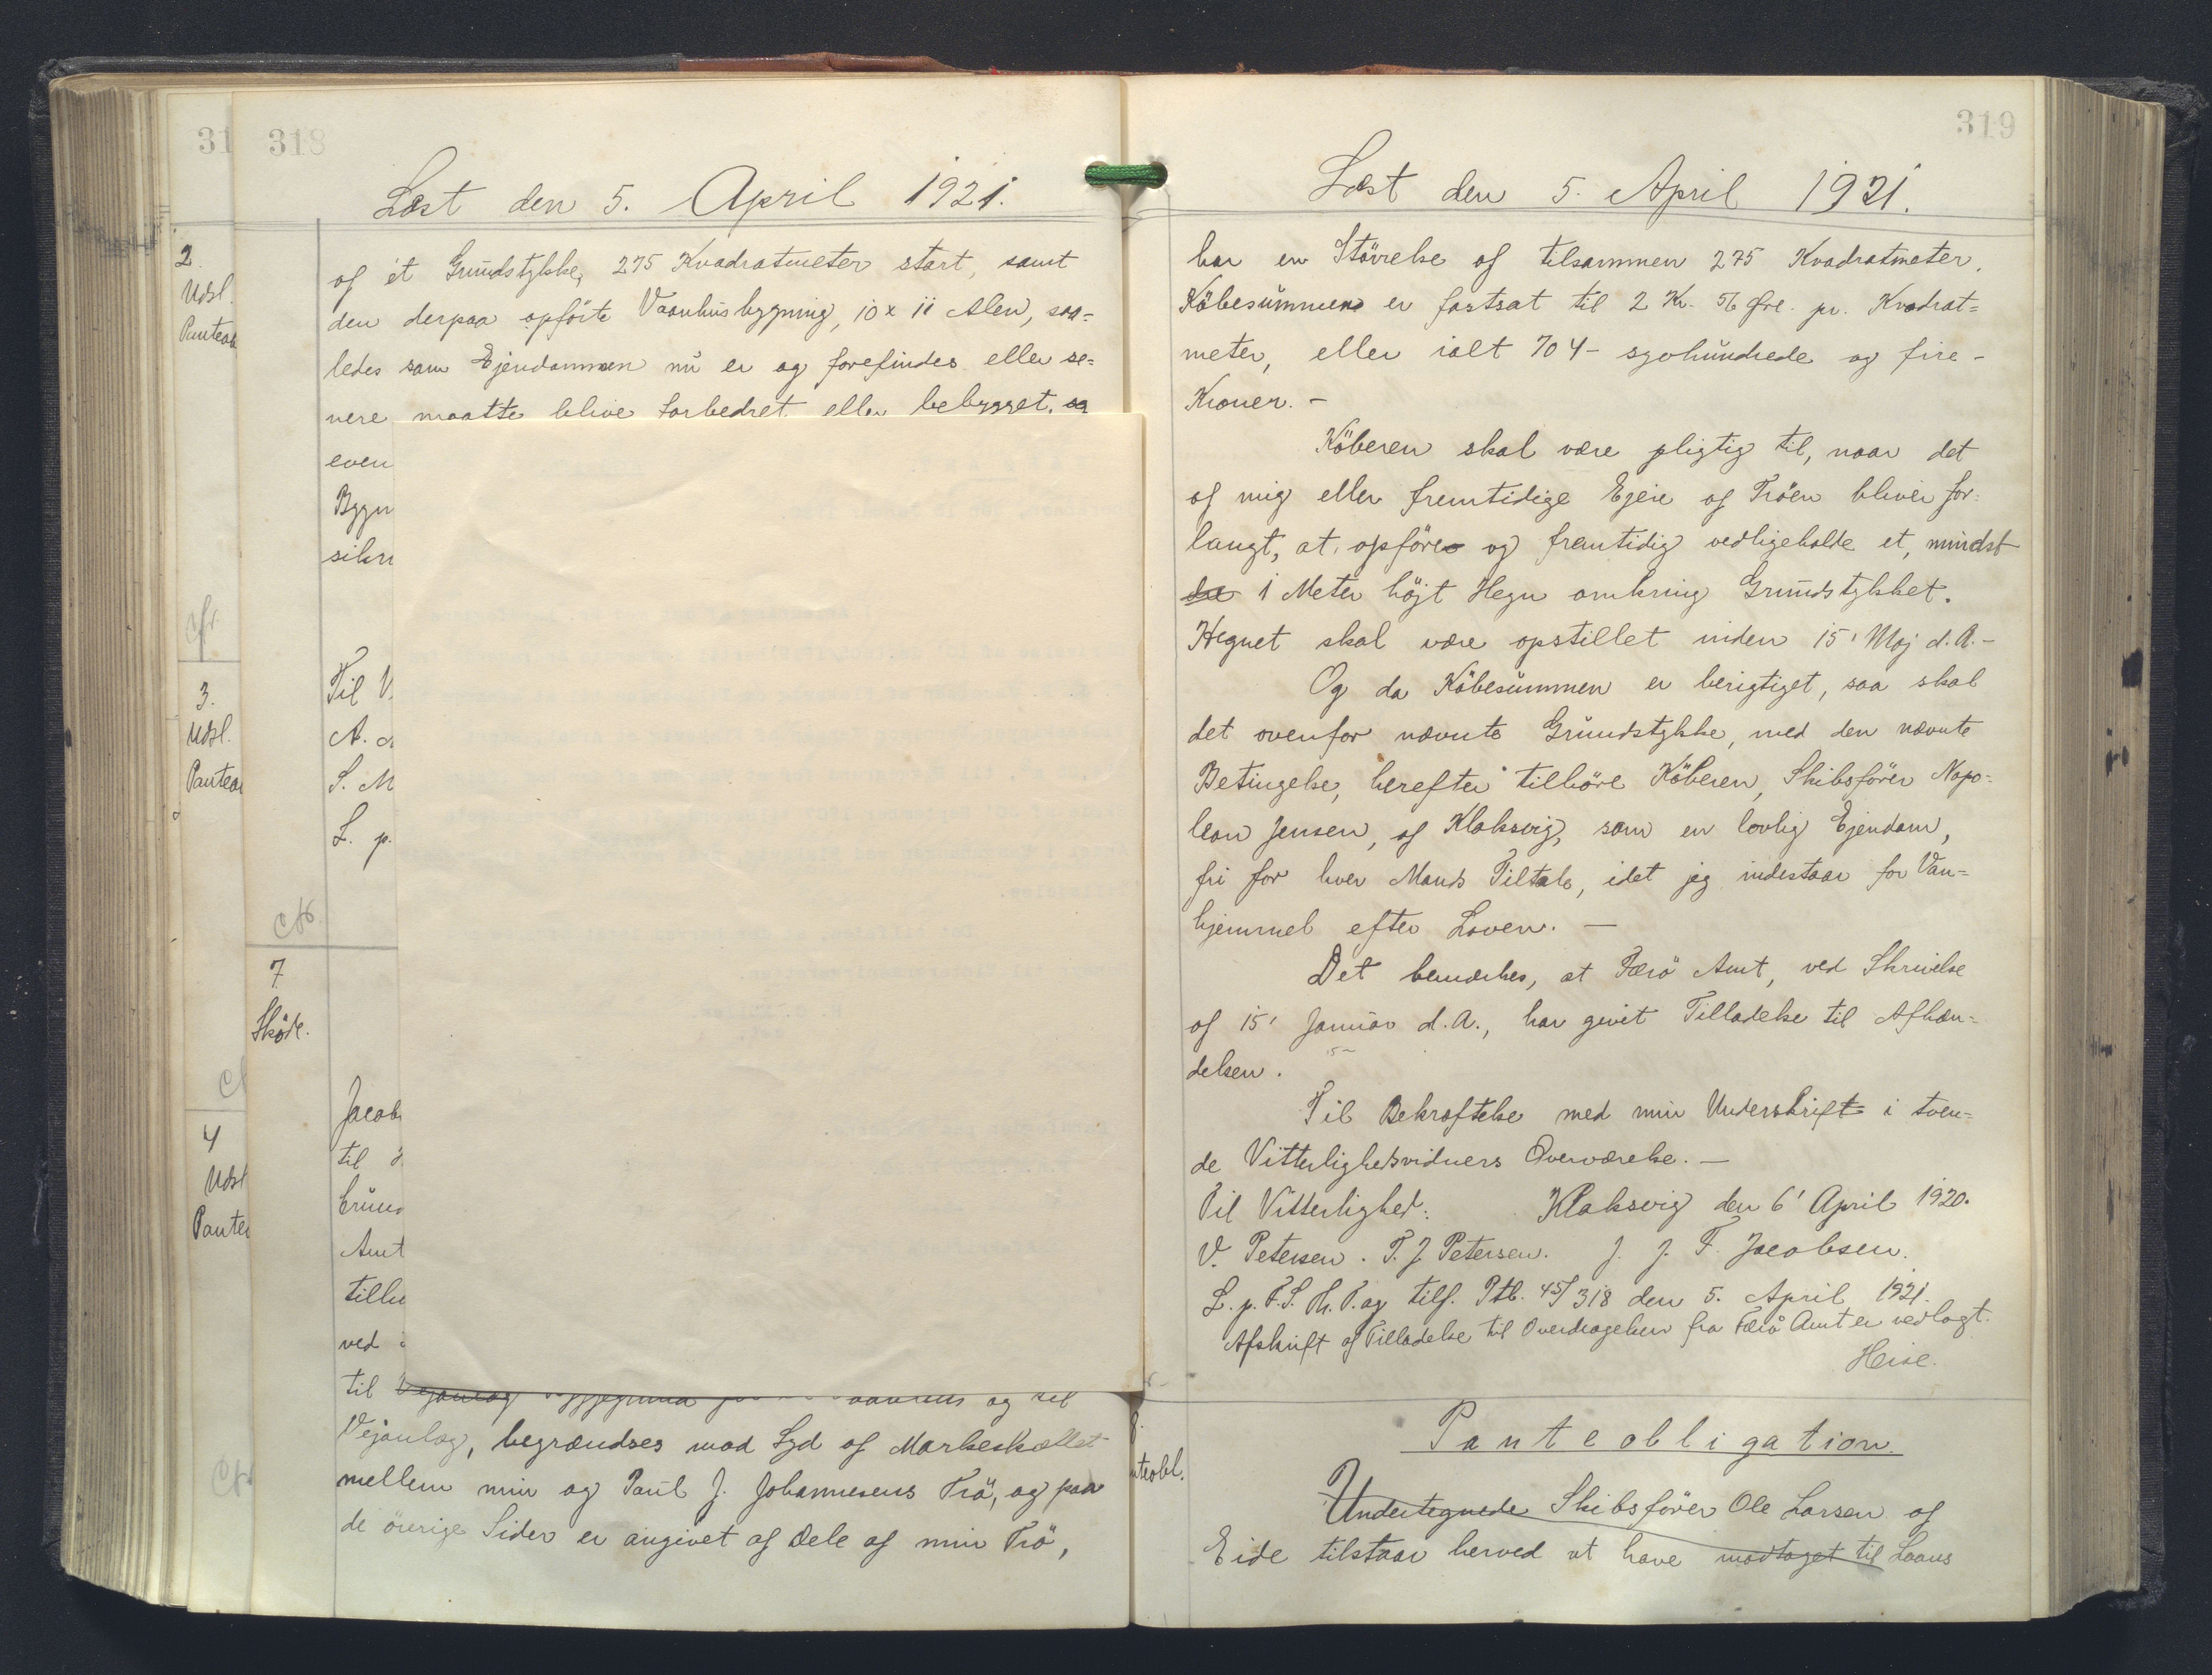 31
2.
Udsl.
Panteob
cfr.
3.
Udsl.
Panteo
4
Udsl
Pante
318
Læst den 5. April 1921.
af et Grundstykke, 275 Kvadratmeter stort, samt
den derpaa opførte Vaanhusbygning, 10 x 11 Alen, saa=
ledes som Ejendommen nu er og forefindes eller se=
nere maatte blive forbedret eller bebygget, og
even
Bygn
sikr
Til V.
A.
S. M
L. p.
cfr.
7.
Skøde.
Jacob
til
Amt
tillig
ved
til
Vejanlæg, begrændses mod Syd af Markeskællet
mellem min og Paul J. Johannesens Trö, og paa
de övrige Sider er angivet af Dele af min Trö,
319
Læst den 5. April 1921.
har en Störrelse af tilsammen 275 Kvadratmeter.
Köbesummen er fastsat til 2 Kr. 56 Øre. pr. Kvadrat=
meter, eller ialt 704 - syvhundrede og fire -
Kroner. -
Köberen skal være pligtig til, naar det
af mig eller fremtidige Ejere af Tröen bliver for=
langt, at opföre og fremtidig vedligeholde et, mindst
1 Meter höjt Hegn omkring Grundstykket.
Hegnet skal være opstillet inden 15' Maj d. A. -
Og da Köbesummen er berigtiget, saa skal
det ovenfor nævnte Grundstykke, med den nævnte
Betingelse, herefter tilhöre Köberen, Skibsförer Napo=
leon Jensen, af Klaksvig, som en lovlig Ejendom,
fri for hver Mands Tiltale, idet jeg indestaar for Van=
hjemmel efter Loven. -
Det bemærkes, at Færö Amt, ved Skrivelse
af 15' Januar d. A., har givet Tilladelse til Afhæn=
delsen.
Til Bekræftelse med min Underskrift i tven=
de Vitterlighedsvidners Overværelse. -
Til Vitterlighed: Klaksvig den 6' April 1920.
V. Petersen. T. J. Petersen. J. J. F. Jacobsen.
L. p. F. S. Th. T. og tilf. Ptb. 45/318 den 5. April 1921.
Afskrift af Tilladelse til Overdragelsen fra Færö Amt er vedlagt.
Heise.
8.
nteobl.
Panteobligation.
Undertegnede Skibsförer Ole Larsen af
Eide tilstaar herved at have modtaget til Laans